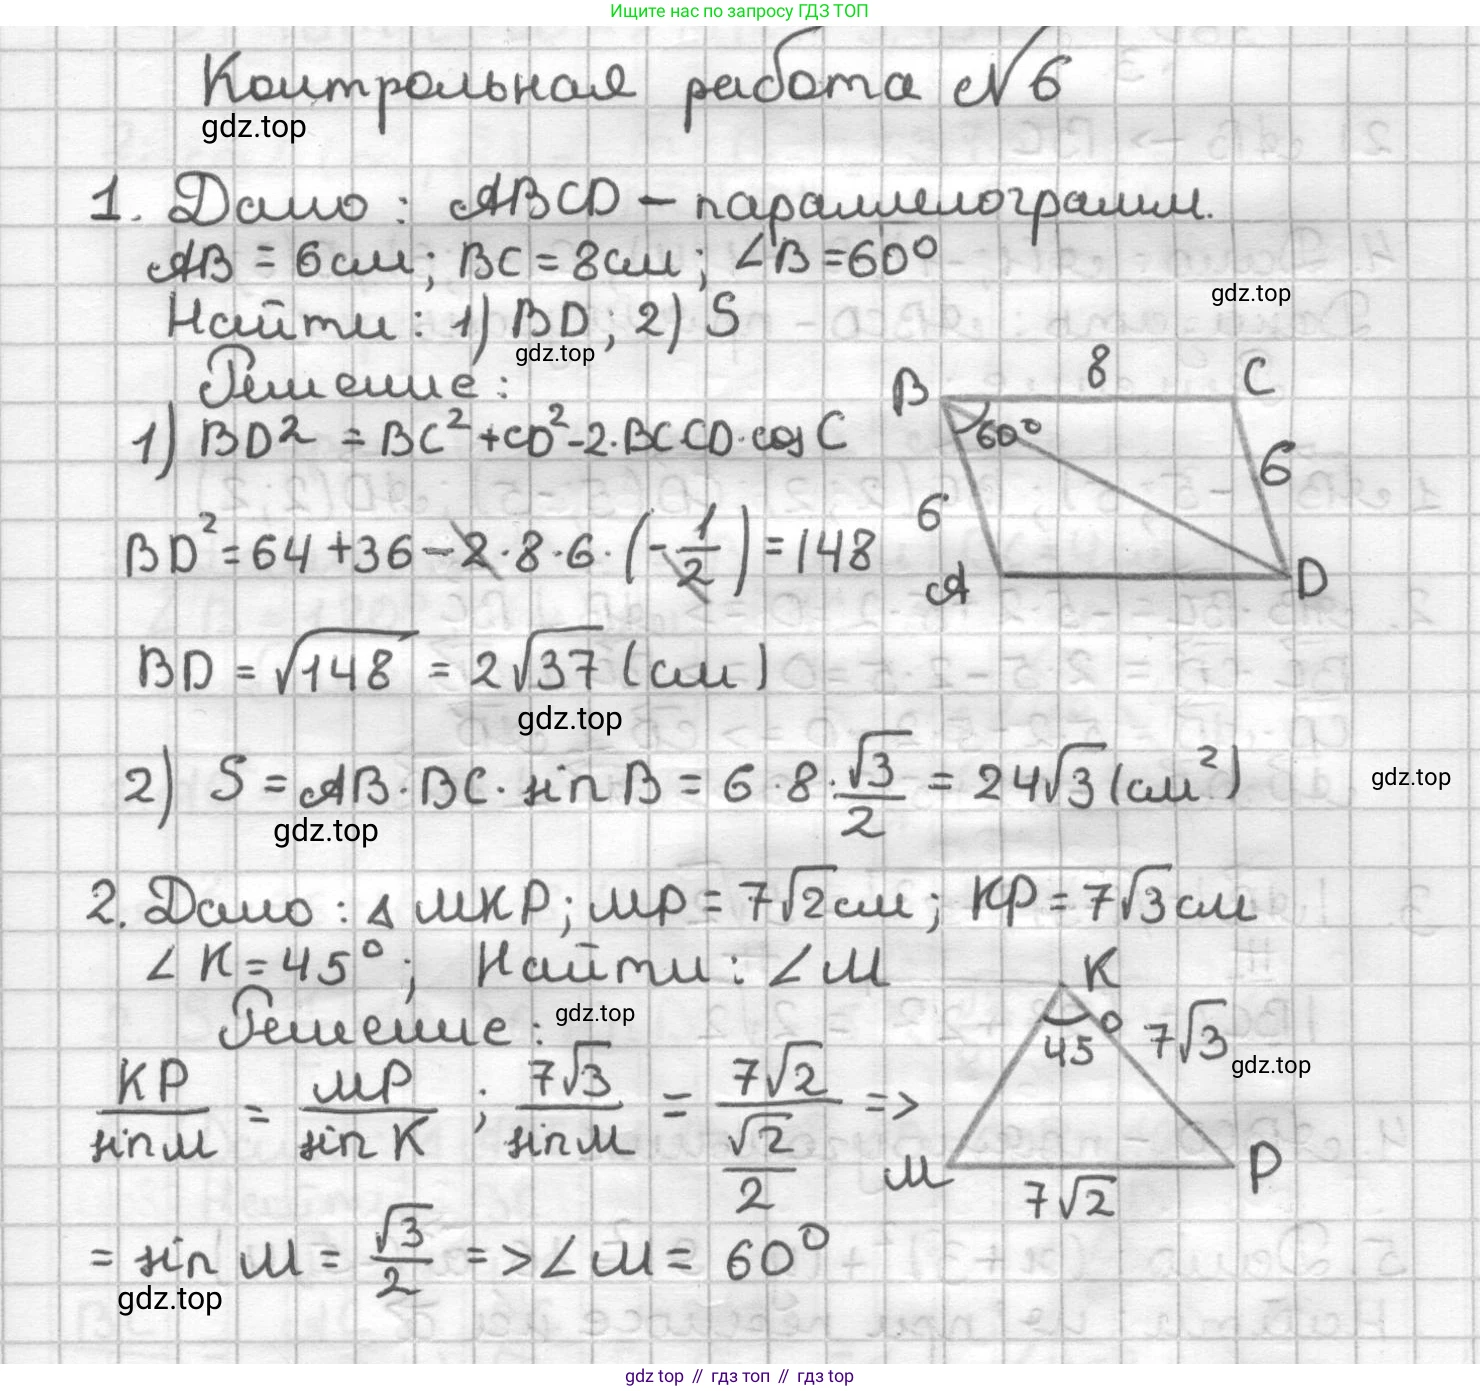 Ищите нас по запросу ГДЗ ТОП
Контрольная работа №6
gdz.top
1. Дано: ABCD – параллелограмм.
AB = 6см; BC = 8см; ∠B = 60°
gdz.top
Найти: 1) BD; 2) S
gdz.top
Решение:
1) BD² = BC² + CD² - 2·BC·CD·cos C
BD² = 64 + 36 - 2·8·6·(-1/2) = 148
B 8 C
60°
6 6
A D
BD = √148 = 2√37 (см)
gdz.top
2) S = AB·BC·sin B = 6·8·√3/2 = 24√3 (см²)
gdz.top
gdz.top
2. Дано: Δ MKP; MP = 7√2 см; KP = 7√3 см
∠K = 45°; Найти: ∠M
Решение:
gdz.top
KP/sin M = MP/sin K; 7√3/sin M = 7√2/(√2/2) =>
K
45° 7√3
gdz.top
M P
7√2
= sin M = √3/2 => ∠M = 60°
gdz.top
gdz top // гдз топ // гдз top